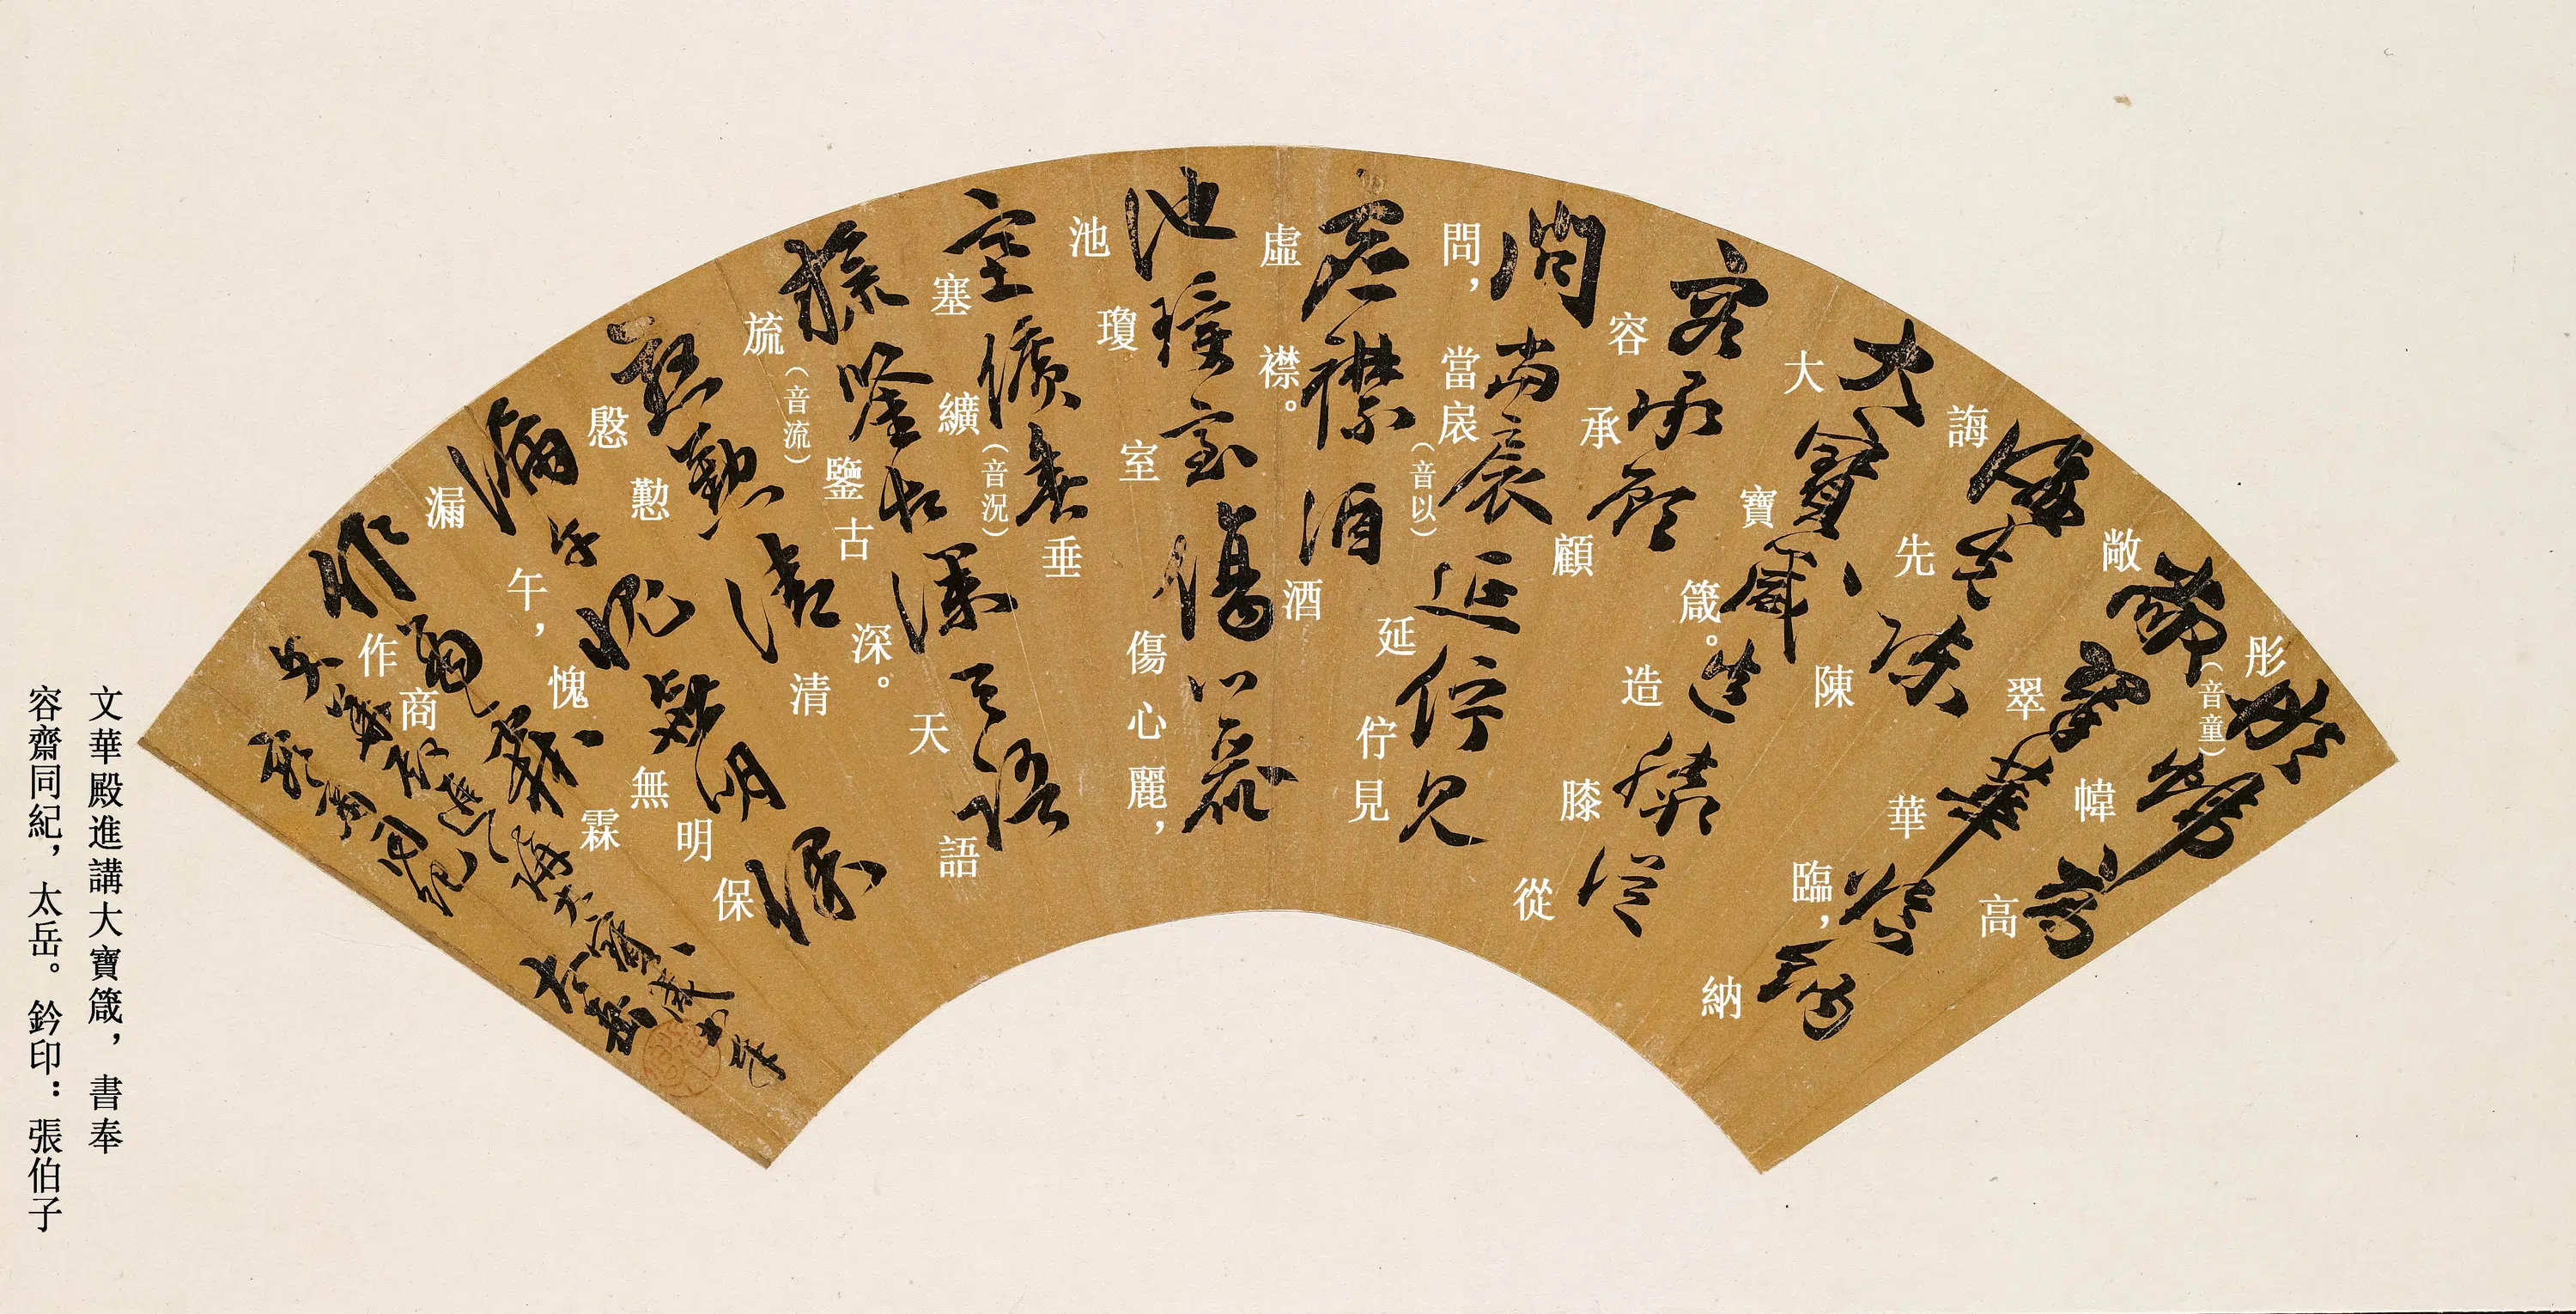 彤（音童）幃高
敞翠華臨，納
誨先陳
大寶箴。造膝從
容承顧
問，當扆（音以）延佇見
虛襟。酒
池瓊室傷心麗，
塞纊（音況）垂
旒（音流）鑒古深。天語
慇懃清
漏午，愧無明保
作商霖
文華殿進講大寶箴，書奉
容齋同紀，太岳。鈐印：張伯子